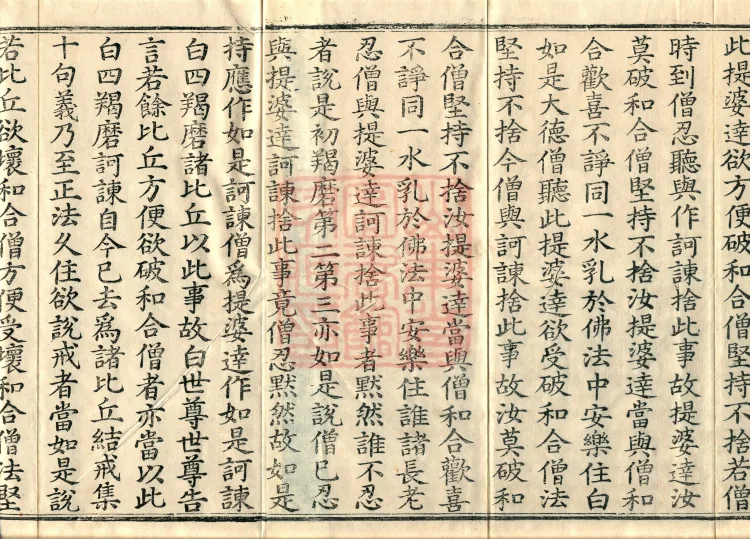 此提婆達欲方便破和合僧堅持不捨若僧
時到僧忍聽與作訶諫捨此事故提婆達汝
莫破和合僧堅持不捨汝提婆達當與僧和
合歡喜不諍同一水乳於佛法中安樂住白
如是大德僧聽此提婆達欲受破和合僧法
堅持不捨今僧與訶諫捨此事故汝莫破和
合僧堅持不捨汝提婆達當與僧和合歡喜
不諍同一水乳於佛法中安樂住誰諸長老
忍僧與提婆達訶諫捨此事者默然誰不忍
者說是初羯磨第二第三亦如是說僧已忍
與提婆達訶諫捨此事竟僧忍默然故如是
持應作如是訶諫僧爲提婆達作如是訶諫
白四羯磨諸比丘以此事故白世尊世尊告
言若餘比丘方便欲破和合僧者亦當以此
白四羯磨訶諫自今已去爲諸比丘結戒集
十句義乃至正法久住欲說戒者當如是說
若比丘欲壞和合僧方便受壞和合僧法堅